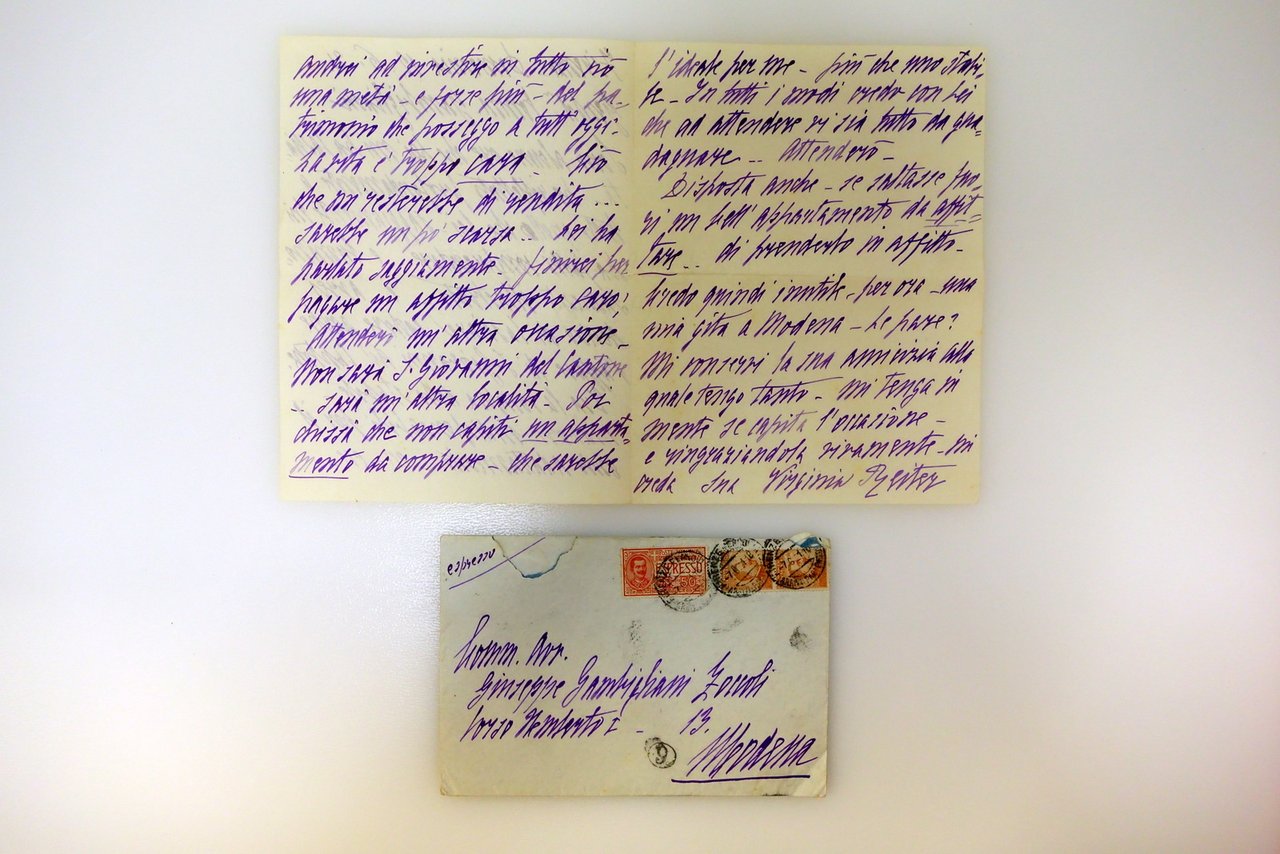 andrei ad investire in tutto ciò
una metà - e forse più - del pa-
trimonio che posseggo a tutt'oggi.
La vita è troppo cara - Ciò
che mi resterebbe di rendita ...
sarebbe un po' scarso .. Lei ha
parlato saggiamente - finirei per
pagare un affitto troppo caro!
Attenderò un'altra occasione -
Non sarà S. Giovanni del Cantone
.. sarà un'altra località - Poi
chissà che non capiti un apparta-
mento da comprare - che sarebbe
l'ideale per me - più che uno stabi-
le - In tutti i modi credo con Lei
che ad attendere vi sia tutto da gua-
dagnare .. Attenderò -
Disposta anche - se saltasse fuo-
ri un bell'appartamento da affit-
tare .. di prenderlo in affitto -
Credo quindi inutile - per ora - una
mia gita a Modena - Le pare?
Mi conservi la sua amicizia alla
quale tengo tanto - mi tenga in
mente se capita l'occasione -
e ringraziandola vivamente - mi
creda sua Virginia Reiter
espresso
ESPRESSO
Comm. Avv.
Giuseppe Gambigliani Zoccoli
Corso Umberto I - 13.
Modena
9